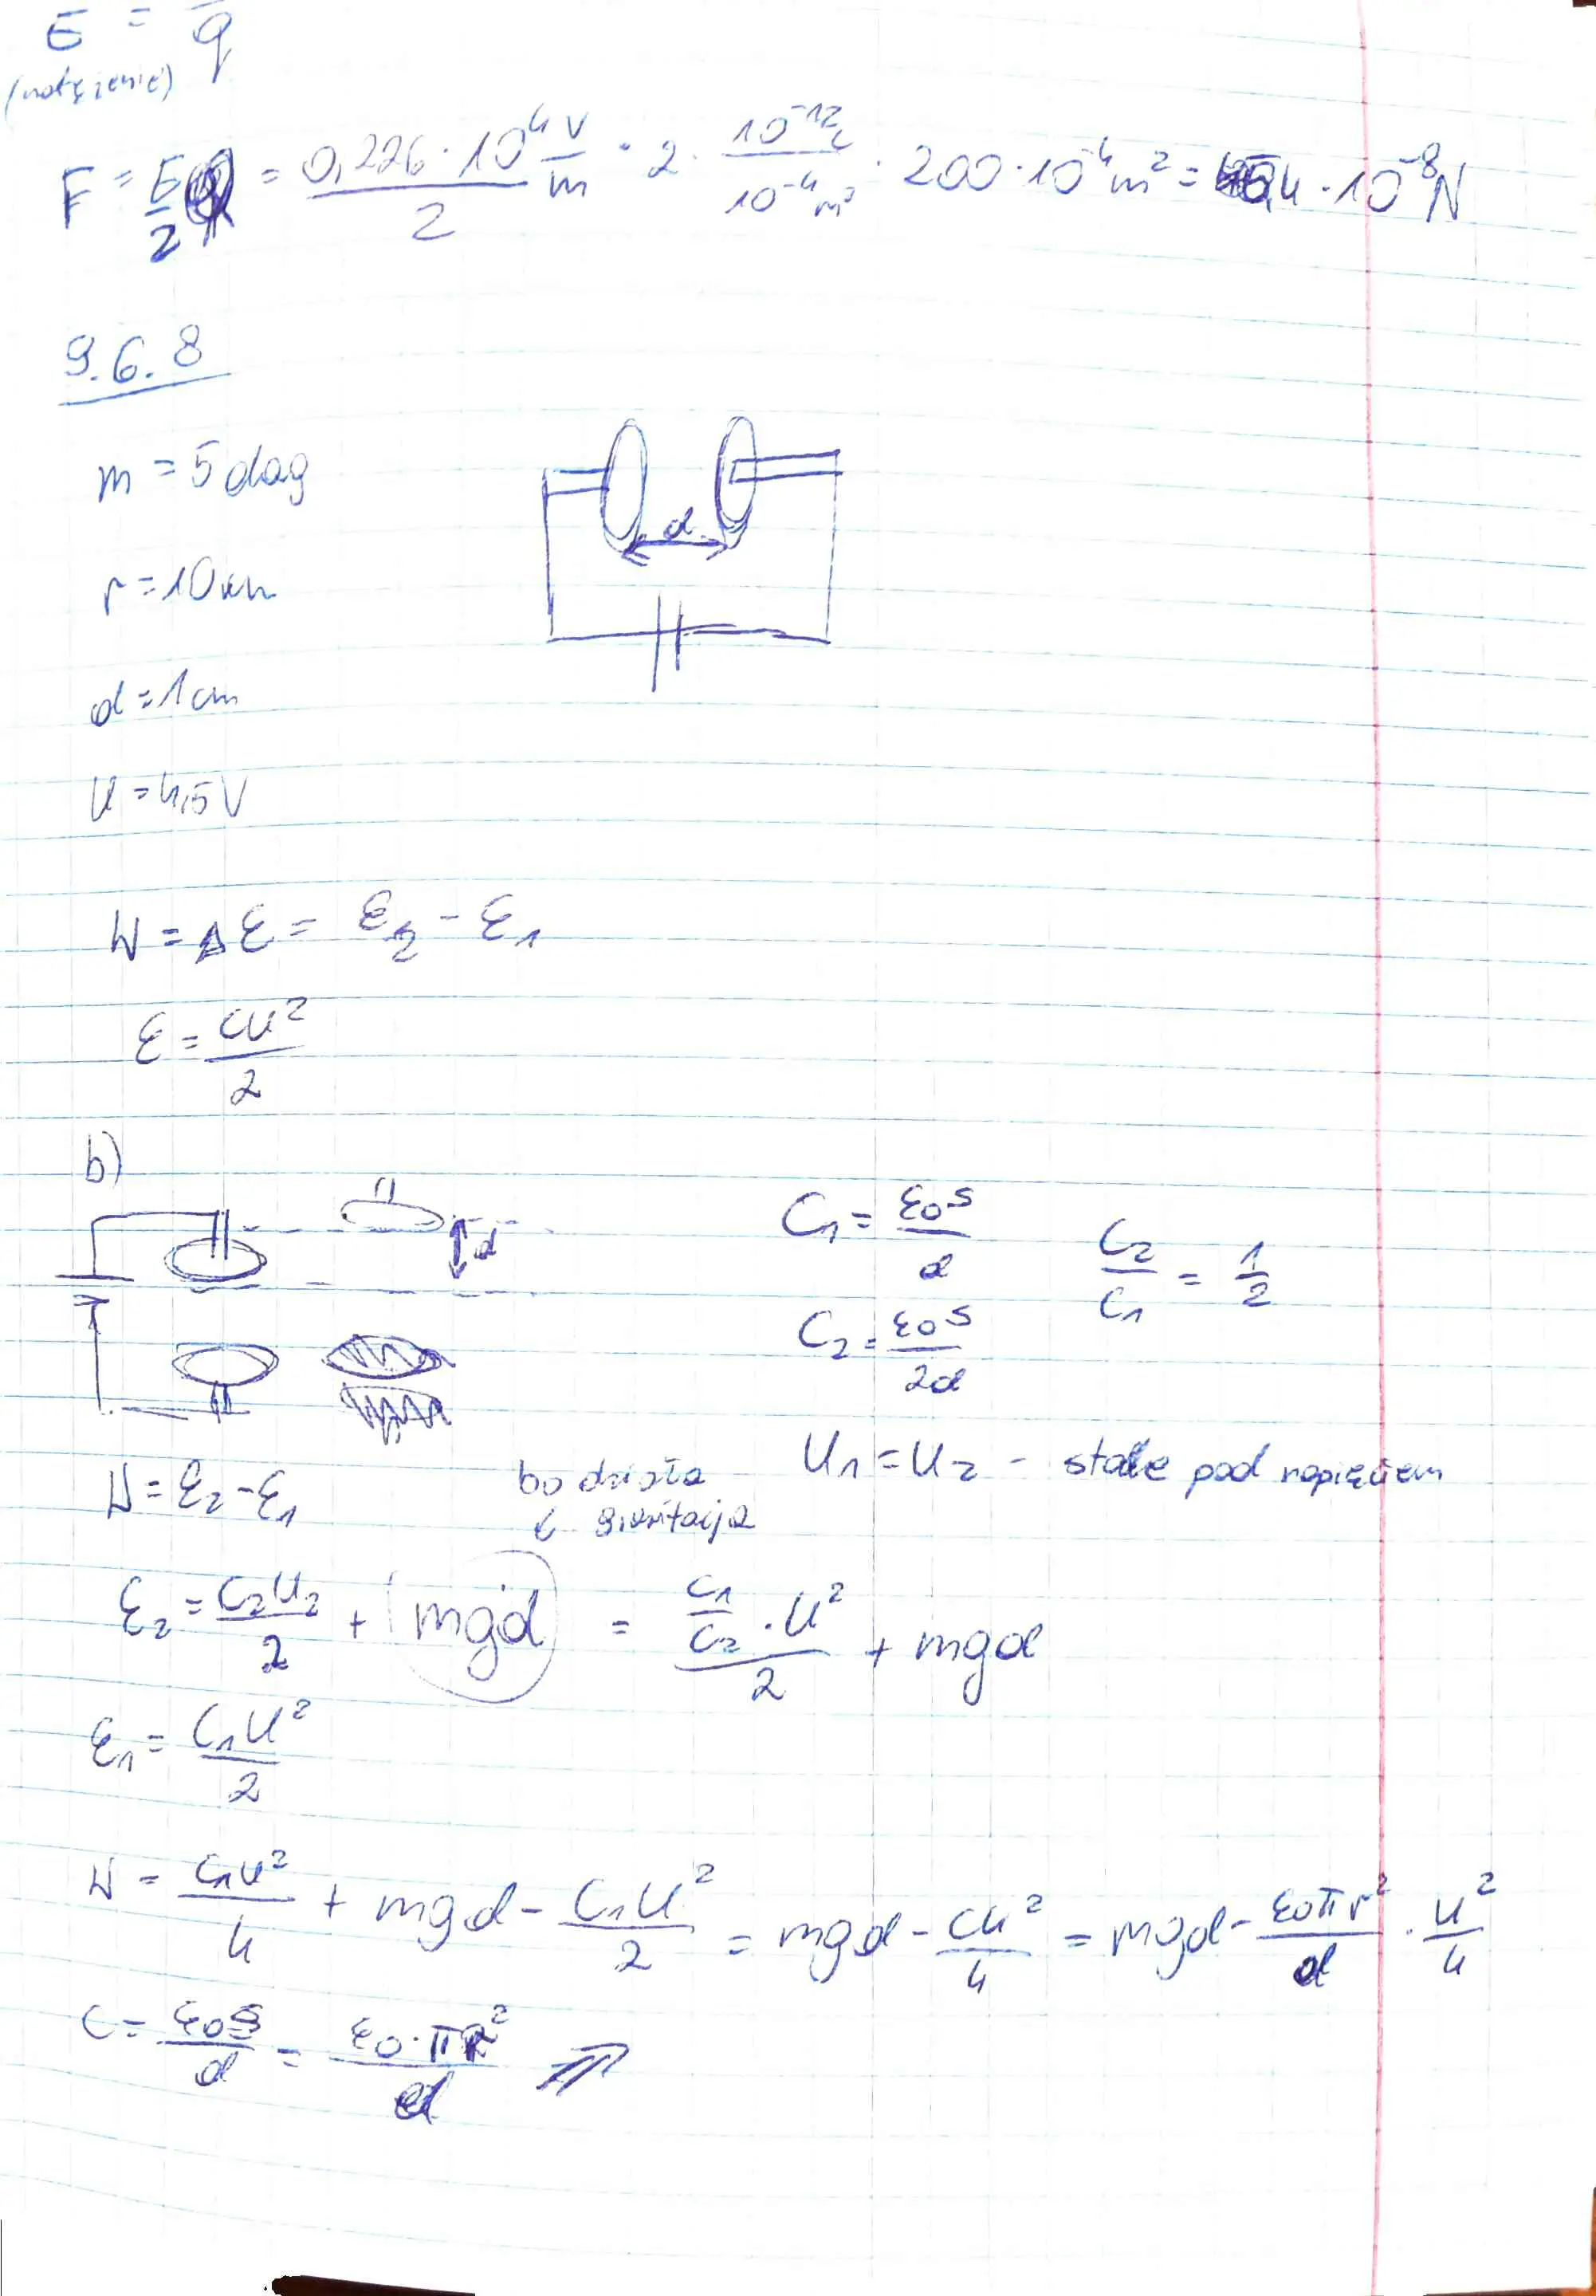 E = q
(natężenie)
F = E/2 Q = 0,226·10⁴ V/m / 2 · 2 · 10⁻¹²C / 10⁻⁴m² · 200·10⁻⁴m² = 4·10⁻⁸N
9.6.8
m = 5 dag
r = 10 cm
d
d = 1 cm
U = 4,5V
W = Δε = ε₂ - ε₁
ε = CU²/2
b)
d
C₁ = ε₀S/d
C₂/C₁ = 1/2
C₂ = ε₀S/2d
U₁ = U₂ - stałe pod napięciem
W = ε₂ - ε₁
bo działa
grawitacja
ε₂ = C₂U₂/2 + mgd = C₁/C₂ · U²/2 + mgd
ε₁ = C₁U²/2
W = C₁U²/4 + mgd - C₁U²/2 = mgd - CU²/4 = mgd - ε₀πr²/d · U²/4
C = ε₀S/d = ε₀·πR²/d ⇒